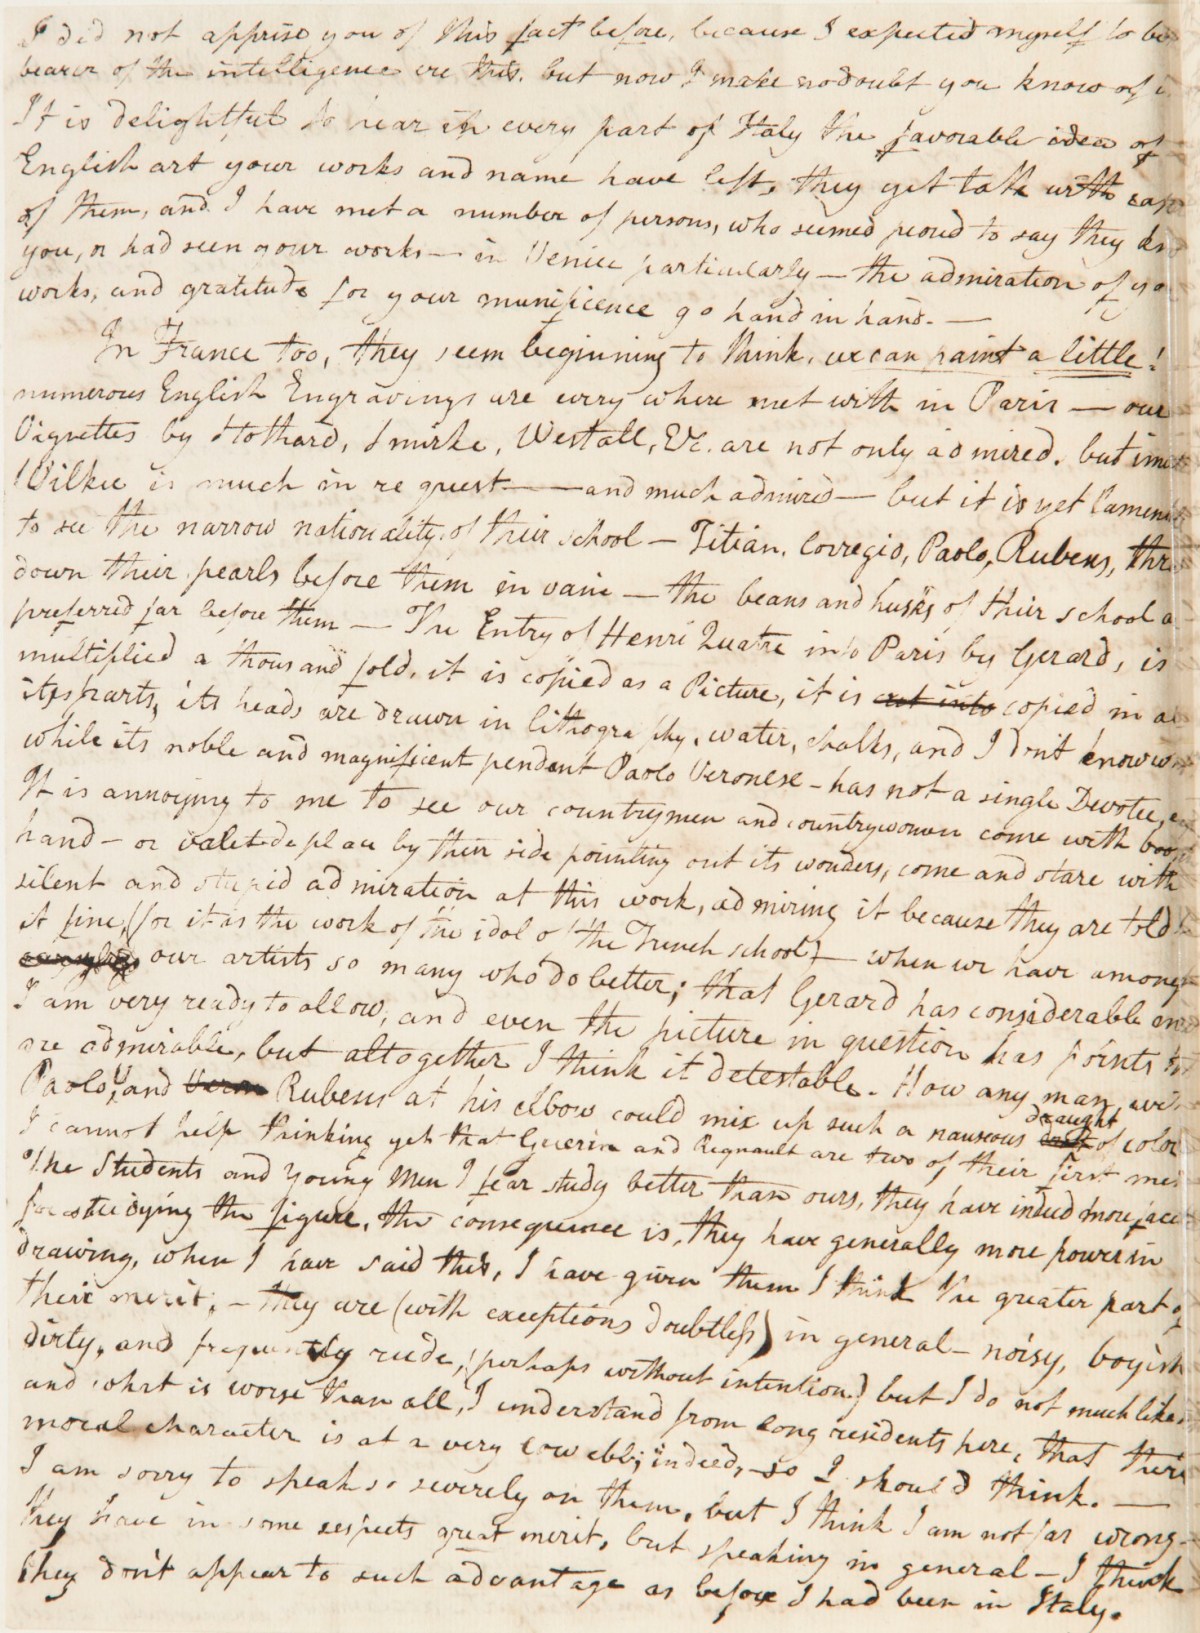 I did not apprise you of this fact before, because I expected myself to be
bearer of the intelligence ere this. but now I make no doubt you know of
It is delightful to hear in every part of Italy the favorable idea of
English art your works and name have left, they yet talk with
of them, and I have met a number of persons, who seemed proud to say they
you, or had seen your works — in Venice particularly — the admiration of yo
works, and gratitude for your munificence go hand in hand. —
In France too, they seem beginning to think, we can paint a little!
numerous English Engravings are every where met with in Paris — our
Vignettes by Stothard, Smirke, Westall, &c. are not only admired. but
Wilkie is much in request — — and much admired — but it is yet lamen
to see the narrow nationality of their school — Titian. Corregio, Paolo, Rubens, thr
down their pearls before them in vain — the beans and husks of their school a
preferred far before them — The Entry of Henri Quatre into Paris by Gerard, is
multiplied a thousand fold. it is copied as a Picture, it is cut into copied in
its parts, its heads are drawn in lithography, water, chalks, and I don't know
while its noble and magnificent pendent Paolo Veronese - has not a single Devotee,
It is annoying to me to see our countrymen and countrywomen come with boo
hand — or valet de place by their side pointing out its wonders, come and stare with
silent and stupid admiration at this work, admiring it because they are told
it fine, (for it is the work of the idol of the French school) — when we have among
our artists so many who do better; that Gerard has considerable
I am very ready to allow, and even the picture in question has points
are admirable, but altogether I think it detestable. How any man, wi
Paolo V, and Vero Rubens at his elbow could mix up such a nauseous draught of color
I cannot help thinking yet that Guerin and Regnault are two of their first me
The Students and Young Men I fear study better than ours, they have indeed more fac
for studying the figure, the consequence is, they have generally more power in
drawing, when I have said this, I have given them I think the greater part of
their merit; — they are (with exceptions doubtless) in general — noisy, boyish
dirty, and frequently rude, (perhaps without intention) but I do not much like
and what is worse than all, I understand from long residents here, that their
moral character is at a very low ebb; indeed, so I should think. —
I am sorry to speak so severely on them, but I think I am not far wrong —
they have in some respects great merit, but speaking in general — I think
they don't appear to such advantage as before I had been in Italy.